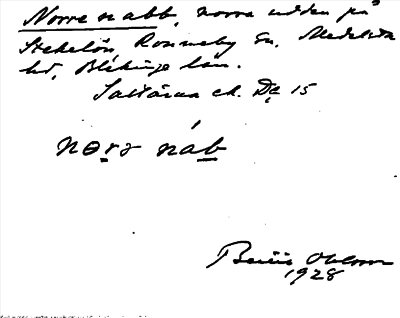 Norre nabb, norra udden på
Stekelön, Ronneby sn, Medelsta
hd, Blekinge län.
Saltärna ek. Da 15
nɵrə náb
Bertil Ohlsson
1928